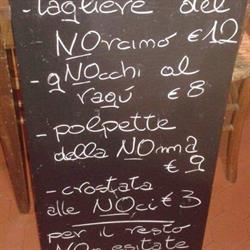 - tagliere del
NOrcino €12
- gNOcchi al
ragù €8
- polpette
della NOnna
€9
- crostata
alle NOci €3
per il resto
NOn esitate